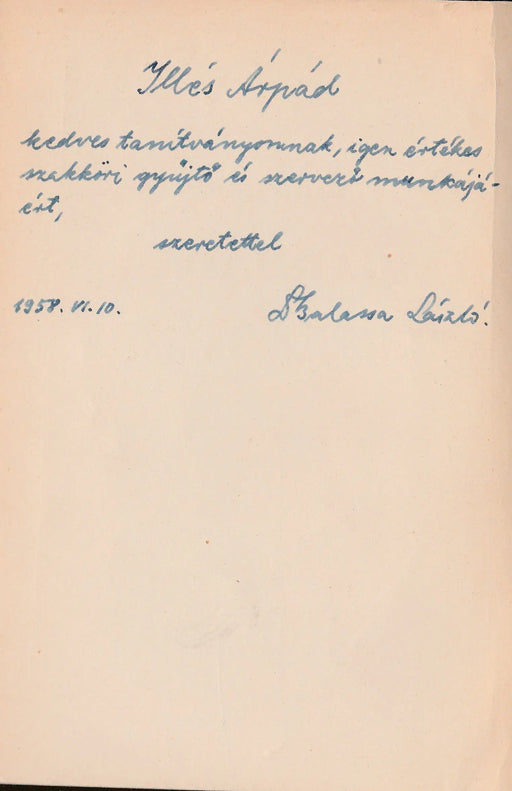 Illés Árpád
kedves tanítványomnak, igen értékes
szakköri gyűjtő és szervező munkájá-
ért,
szeretettel
1958. VI. 10.
D Balassa László.